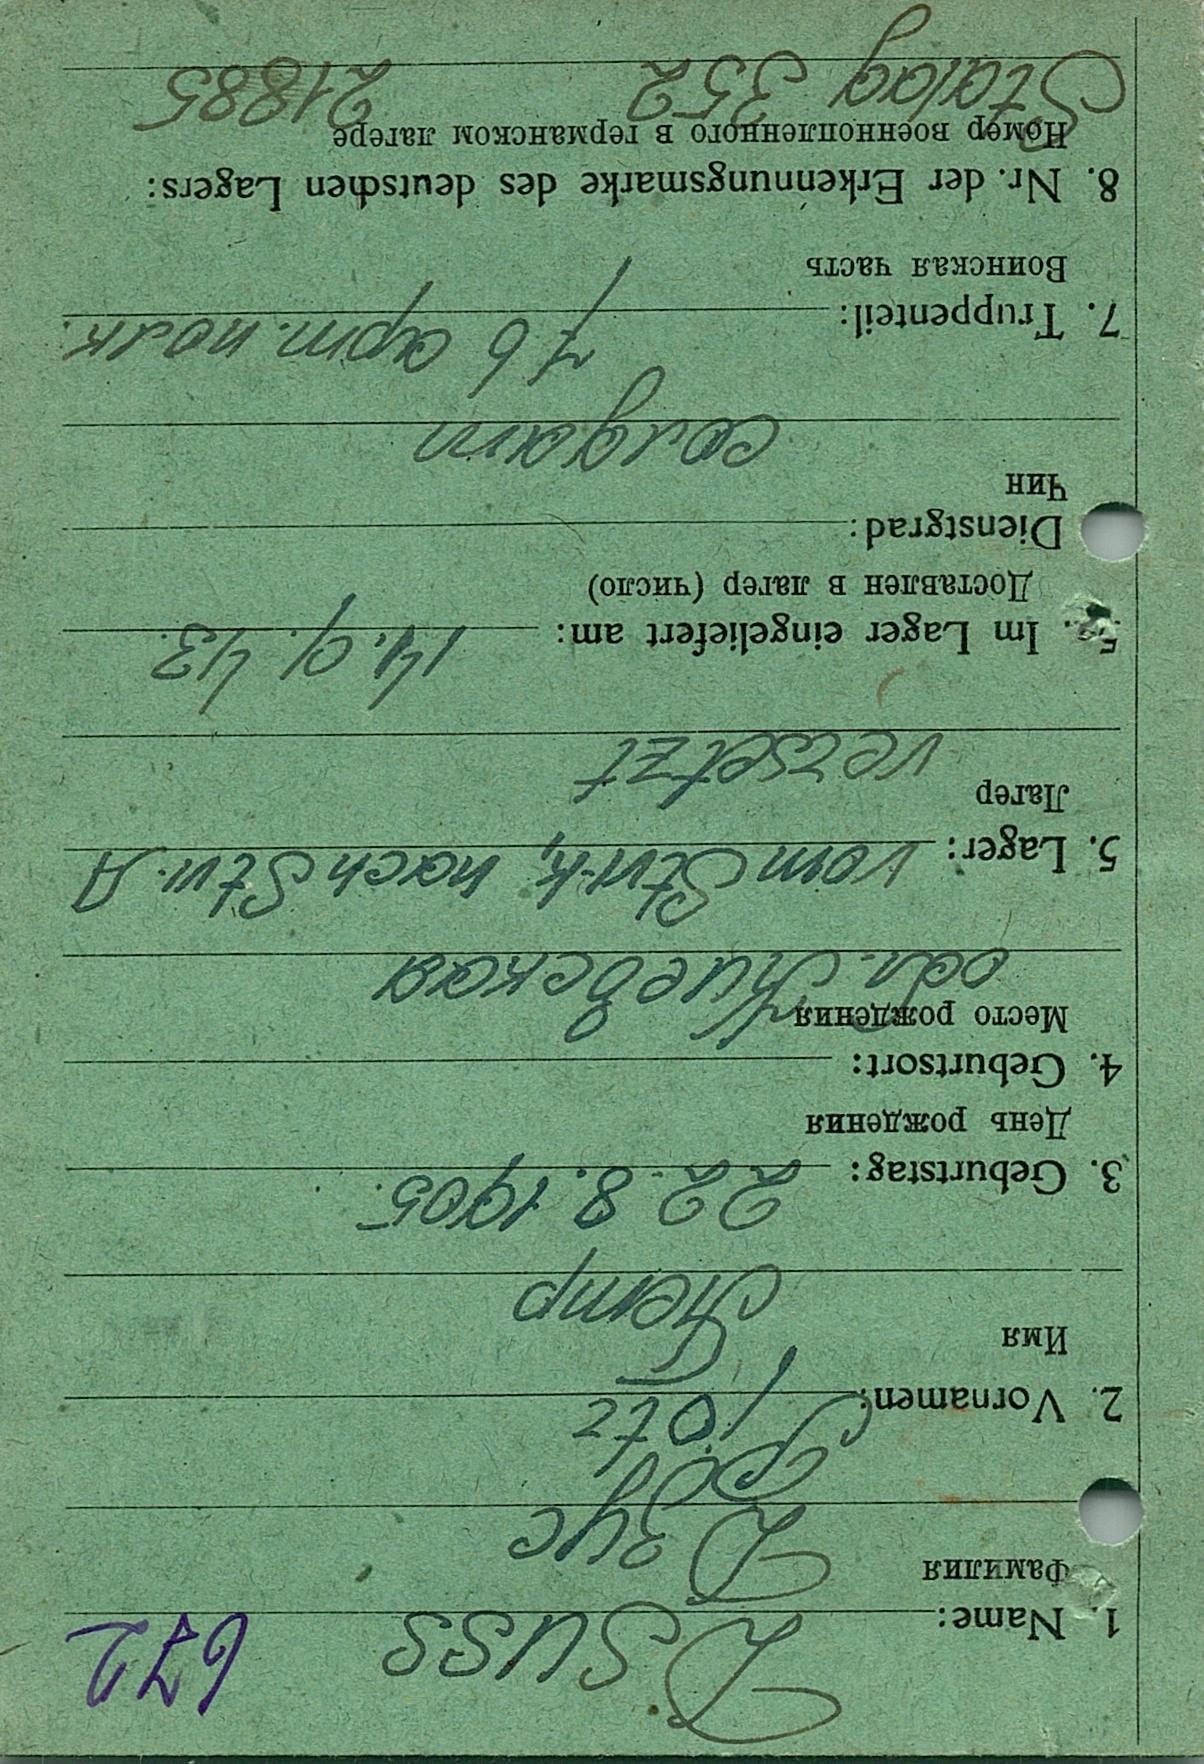 672
1. Name: Dsuss
Фамилия Дзус
2. Vornamen: Pjotr
Имя Петр
3. Geburtstag: 22.8.1905.
День рождения
4. Geburtsort:
Место рождения
обл. Киевская
5. Lager: vom Stw.K, nach Stw. A
Лагер versetzt
5a. Im Lager eingeliefert am: 14.9.43.
Доставлен в лагер (число)
Dienstgrad:
Чин
солдат
7. Truppenteil: 76 арт. полк.
Воинская часть
8. Nr. der Erkennungsmarke des deutschen Lagers:
Номер военнопленного в германском лагере
Stalag 352 21885